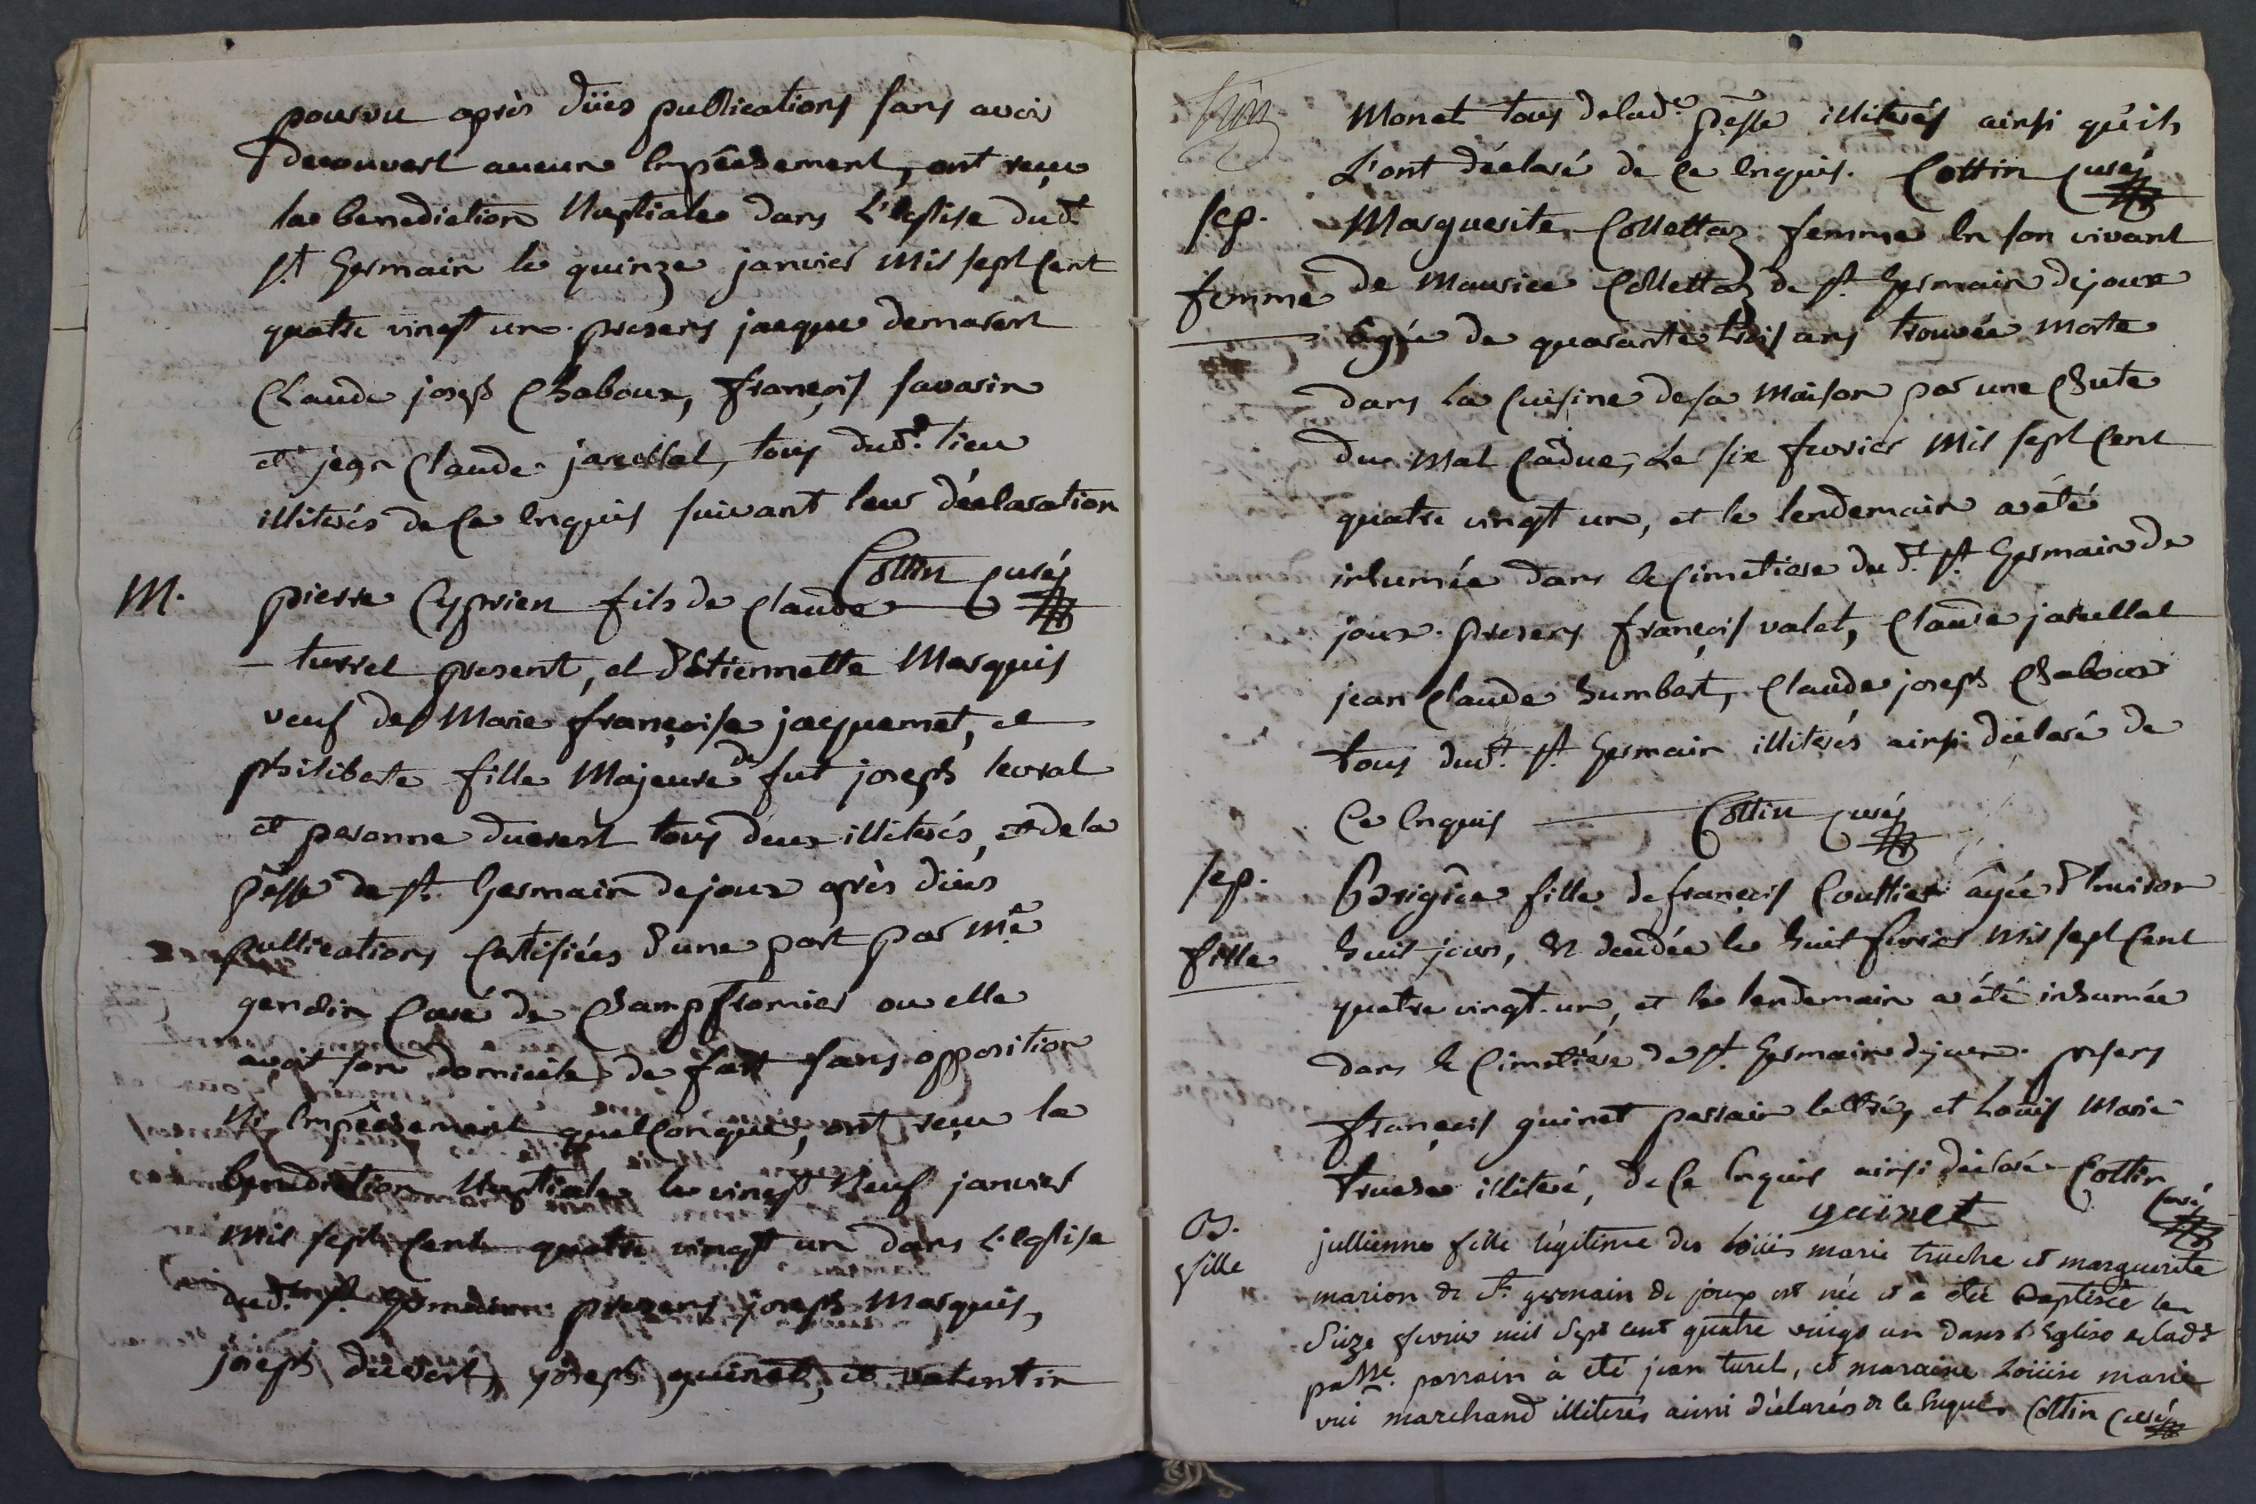 pourvu après düës publications sans avoir
decouvert aucun Empéchement, ont reçu
la benediction Nuptiale dans L'Eglise dud.t
St Germain le quinze janvier mil sept Cent
quatre vingt un. presens jacque demarest
Claude joseph Chaboux, françois savarin
et jean Claude jacullat, tous dud.t lieu
illiterés de Ce Enquis suivant leur déclaration
Cottin Curé
M. pierre Cyprien fils de Claude
turrel present, et d'Etiennette Marquis
veuf de Marie françoise jacquemet, et
philiberte fille Majeure de fut joseph levrat
et peronne ducrest tous deux illiterés, et de la
p.esse de St. Germain de joux après düés
publications Certifiées d'une part par M.re
gendin Curé de Champfromier ou elle
avoit son domicile de fait sans opposition
Ni Empéchement quelConque, ont reçu la
benediction Nuptiale le vingt Neuf janvier
mil sept Cent quatre vingt un dans L'Eglise
dud.t St. Germain presens joseph Marquis,
joseph ducrest, joseph guinet, et valentin
Monet tous de lad.e p.esse illiterés ainsi qu'ils
L'ont déclaré de Ce Enquis. Cottin Curé
sep. Marguerite Collettaz femme En son vivant
femme de Maurice Collettaz de St. Germain de joux
âgée de quarante trois ans trouvée Morte
dans La Cuisine de sa Maison par une Chute
du Mal Caduc, Le six fevrier Mil sept Cent
quatre vingt un, et le lendemain a été
inhumée dans le Cimetiere du d.t St. Germain de
joux. presens françois valet, Claude jacullat
jean Claude humbert, Claude joseph Chaboux
tous dud.t St. Germain illiterés ainsi déclaré de
Ce Enquis Cottin Curé
sep. Brigide fille de françois Couttier âgée d'Environ
fille huit jours, Est decedée le huit fevrier Mil sept Cent
quatre vingt un, et le lendemain a été inhumée
dans le Cimetiere de St. Germain de joux. presens
françois guinet parrain lettré, et Loüis Marie
truche illiteré, de Ce Enquis ainsi déclaré Cottin
guinet Curé
B. jullienne fille légitime de Loüis marie truche et marguerite
fille marion de St. germain de joux est née et a été Baptisée le
seize fevrier mil sept cent quatre vingt un dans l'Eglise de lad.e
p.sse. parrain à eté jean turel, et maraine Loüise marie
marchand illiterés ainsi déclarés de ce Enquis Cottin Curé